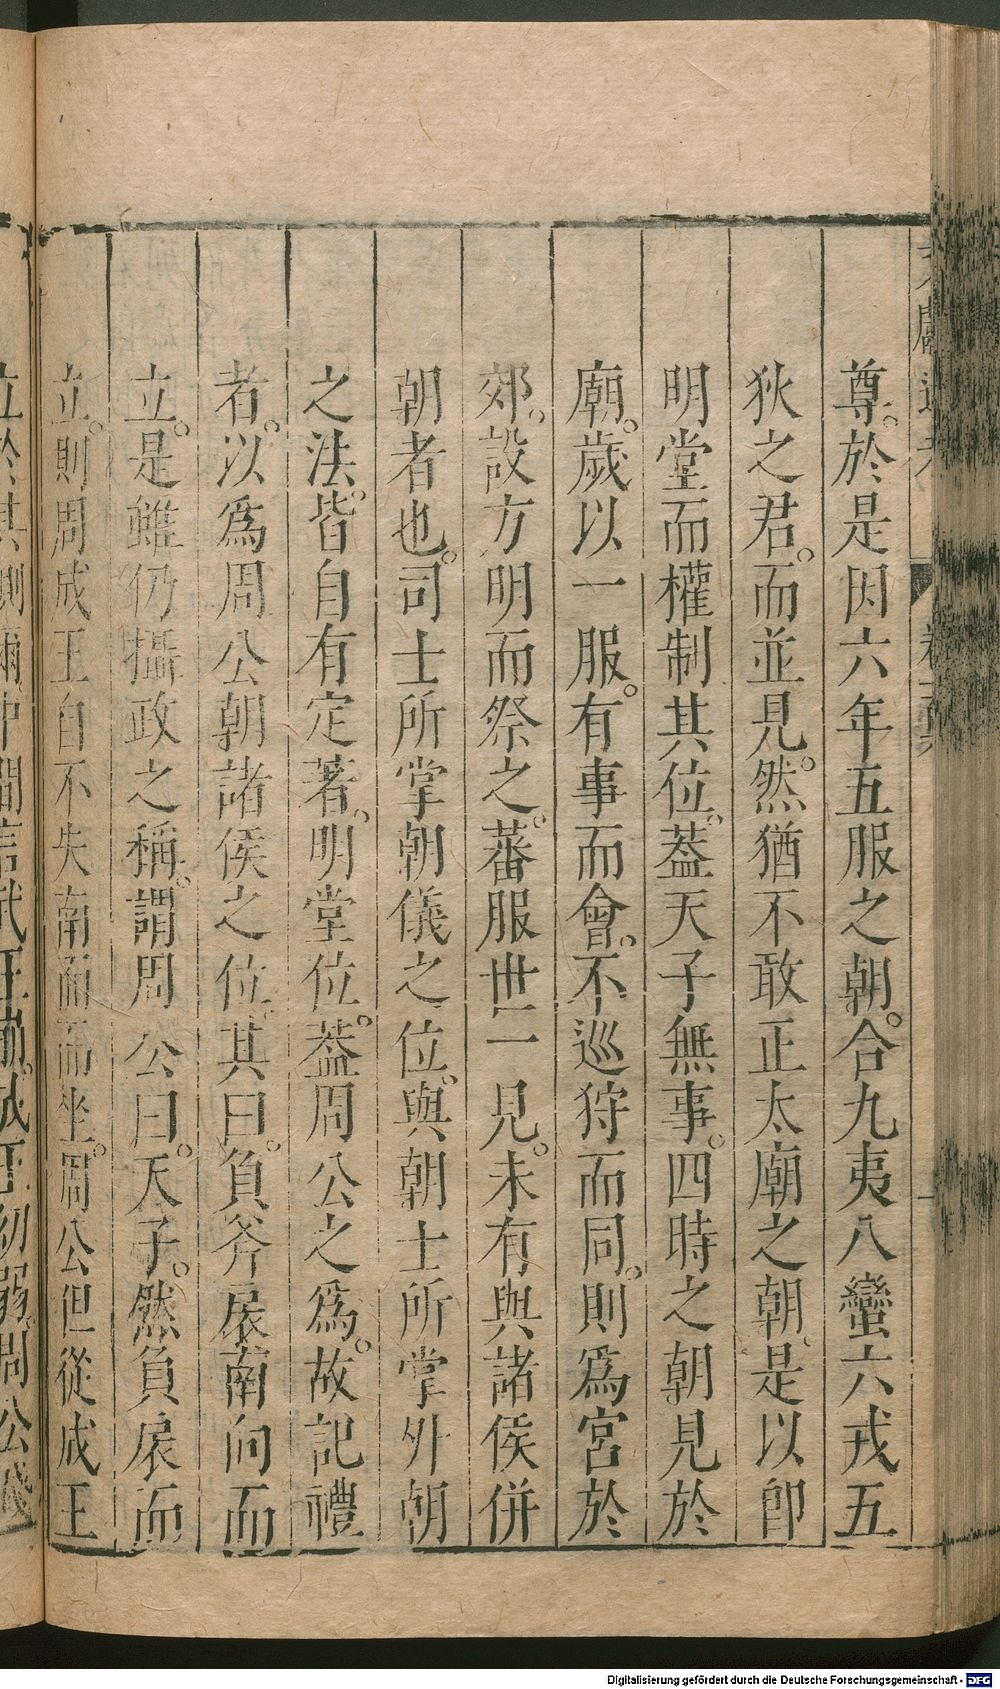 尊。於是因六年五服之朝。合九夷八蠻六戎五
狄之君。而並見。然猶不敢正太廟之朝。是以卽
明堂而權制其位。蓋天子無事。四時之朝見於
廟。歲以一服。有事而會。不巡狩而同。則爲宮於
郊。設方明而祭之。蕃服世一見。未有與諸侯併
朝者也。司士所掌朝儀之位。與朝士所掌外朝
之法。皆自有定著。明堂位。蓋周公之爲。故記禮
者。以爲周公朝諸侯之位。其曰。負斧扆南向而
立。是雖仍攝政之稱。謂周公曰。天子。然負扆而
立。則周成王自不失南面而坐。周公但從成王
立於其側爾。中間言武王崩。成王幼弱。周公
Digitalisierung gefördert durch die Deutsche Forschungsgemeinschaft - DFG